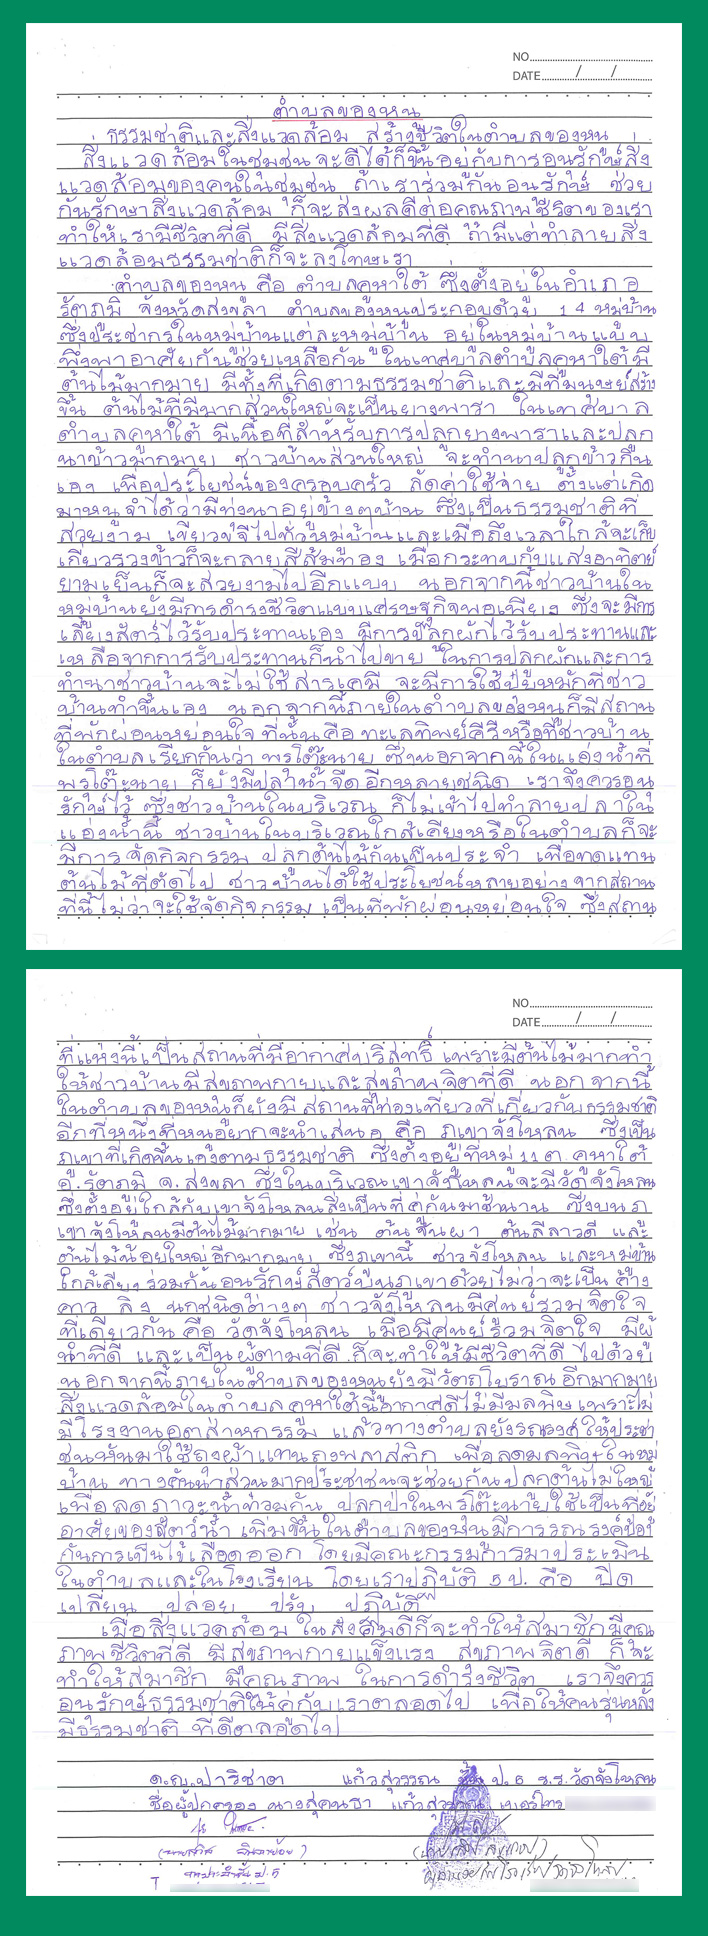 NO.
DATE / /
ตำบลของหนู
ธรรมชาติและสิ่งแวดล้อม สร้างชีวิตในตำบลของหนู
สิ่งแวดล้อมในชุมชนจะดีได้ก็ขึ้นอยู่กับการอนุรักษ์สิ่ง
แวดล้อมของคนในชุมชน ถ้าเราร่วมกันอนุรักษ์ ช่วย
กันรักษาสิ่งแวดล้อม ก็จะส่งผลดีต่อคุณภาพชีวิตของเรา
ทำให้เรามีชีวิตที่ดี มีสิ่งแวดล้อมที่ดี ถ้ามีแต่ทำลายสิ่ง
แวดล้อมธรรมชาติก็จะลงโทษเรา
ตำบลของหนู คือ ตำบลคูหาใต้ ซึ่งตั้งอยู่ในอำเภอ
รัตภูมิ จังหวัดสงขลา ตำบลของหนูประกอบด้วย 14 หมู่บ้าน
ซึ่งประชากรในหมู่บ้านแต่ละหมู่บ้าน อยู่ในหมู่บ้านแบบ
พึ่งพาอาศัยกันช่วยเหลือกัน ในเทศบาลตำบลคูหาใต้มี
ต้นไม้มากมาย มีทั้งที่เกิดตามธรรมชาติและมีที่มนุษย์สร้าง
ขึ้น ต้นไม้ที่มีมากส่วนใหญ่จะเป็นยางพารา ในเทศบาล
ตำบลคูหาใต้ มีเนื้อที่สำหรับการปลูกยางพาราและปลูก
นาข้าวมากมาย ชาวบ้านส่วนใหญ่ จะทำนาปลูกข้าวกิน
เอง เพื่อประโยชน์ของครอบครัว ลดค่าใช้จ่าย ตั้งแต่เกิด
มาหนูจำได้ว่ามีทุ่งนาอยู่ข้างๆบ้าน ซึ่งเป็นธรรมชาติที่
สวยงาม เขียวขจีไปทั่วหมู่บ้านและเมื่อถึงเวลาใกล้จะเก็บ
เกี่ยวรวงข้าวก็จะกลายสีส้มทอง เมื่อกระทบกับแสงอาทิตย์
ยามเย็นก็จะสวยงามไปอีกแบบ นอกจากนี้ชาวบ้านใน
หมู่บ้านยังมีการดำรงชีวิตแบบเศรษฐกิจพอเพียง ซึ่งจะมีการ
เลี้ยงสัตว์ไว้รับประทานเอง มีการปลูกผักไว้รับประทานและ
เหลือจากการรับประทานก็นำไปขาย ในการปลูกผักและการ
ทำนาชาวบ้านจะไม่ใช้สารเคมี จะมีการใช้ปุ๋ยหมักที่ชาว
บ้านทำขึ้นเอง นอกจากนี้ภายในตำบลของหนูก็มีสถาน
ที่พักผ่อนหย่อนใจ ที่นั่นคือ ทะเลทิพย์คีรี หรือที่ชาวบ้าน
ในตำบลเรียกกันว่า พรุโต๊ะนาย ซึ่งนอกจากนี้ในแอ่งน้ำที่
พรุโต๊ะนาย ก็ยังมีปลาน้ำจืดอีกหลายชนิด เราจึงควรอนุ
รักษ์ไว้ ซึ่งชาวบ้านในบริเวณ ก็ไม่เข้าไปทำลายปลาใน
แอ่งน้ำนี้ ชาวบ้านในบริเวณใกล้เคียงหรือในตำบลก็จะ
มีการจัดกิจกรรม ปลูกต้นไม้กันเป็นประจำ เพื่อทดแทน
ต้นไม้ที่ตัดไป ชาวบ้านได้ใช้ประโยชน์หลายอย่างจากสถาน
ที่นี้ ไม่ว่าจะใช้จัดกิจกรรม เป็นที่พักผ่อนหย่อนใจ ซึ่งสถาน
NO.
DATE / /
ที่แห่งนี้เป็นสถานที่มีอากาศบริสุทธิ์ เพราะมีต้นไม้มากทำ
ให้ชาวบ้านมีสุขภาพกายและสุขภาพจิตที่ดี นอกจากนี้
ในตำบลของหนูก็ยังมี สถานที่ท่องเที่ยวที่เกี่ยวกับธรรมชาติ
อีกที่หนึ่งที่หนูอยากจะนำเสนอ คือ ภูเขาจังโหลน ซึ่งเป็น
ภูเขาที่เกิดขึ้นเองตามธรรมชาติ ซึ่งตั้งอยู่ที่หมู่ 11 ต. คูหาใต้
อ. รัตภูมิ จ. สงขลา ซึ่งในบริเวณเขาจังโหลนจะมีวัดจังโหลน
ซึ่งตั้งอยู่ใกล้กับเขาจังโหลนซึ่งเป็นที่คู่กันมาช้านาน ซึ่งบนภู
เขาจังโหลนมีต้นไม้มากมาย เช่น ต้นจันผา ต้นลีลาวดี และ
ต้นไม้น้อยใหญ่อีกมากมาย ซึ่งภูเขานี้ ชาวจังโหลน และหมู่บ้าน
ใกล้เคียงร่วมกันอนุรักษ์สัตว์บนภูเขาด้วยไม่ว่าจะเป็น ค้าง
คาว ลิง นกชนิดต่างๆ ชาวจังโหลนมีศูนย์รวมจิตใจ
ที่เดียวกัน คือ วัดจังโหลน เมื่อมีศูนย์รวมจิตใจ มีผู้
นำที่ดี และเป็นผู้ตามที่ดี ก็จะทำให้มีชีวิตที่ดี ไปด้วย
นอกจากนี้ภายในตำบลของหนูยังมีวัตถุโบราณ อีกมากมาย
สิ่งแวดล้อมในตำบลคูหาใต้นี้อากาศดีไม่มีมลพิษเพราะไม่
มีโรงงานอุตสาหกรรม แล้วทางตำบลยังรณรงค์ให้ประชา
ชนหันมาใช้ถุงผ้าแทนถุงพลาสติก เพื่อลดมลพิษในหมู่
บ้าน ทางต้นน้ำส่วนมากประชาชนจะช่วยกันปลูกต้นไม้ใหญ่
เพื่อลดภาวะน้ำท่วมกัน ปลูกป่าในพรุโต๊ะนายใช้เป็นที่อยู่
อาศัยของสัตว์น้ำ เพิ่มขึ้น ในตำบลของหนูมีการรณรงค์ป้อง
กันการเป็นไข้เลือดออก โดยมีคณะกรรมการมาประเมิน
ในตำบลและในโรงเรียน โดยเราปฏิบัติ 5 ป. คือ ปิด
เปลี่ยน ปล่อย ปรับ ปฏิบัติ
เมื่อสิ่งแวดล้อม ในสังคมดีก็จะทำให้สมาชิกมีคุณ
ภาพชีวิตที่ดี มีสุขภาพกายแข็งแรง สุขภาพจิตดี ก็จะ
ทำให้สมาชิก มีคุณภาพ ในการดำรงชีวิต เราจึงควร
อนุรักษ์ธรรมชาติให้คู่กับเราตลอดไป เพื่อให้คนรุ่นหลัง
มีธรรมชาติ ที่ดีตลอดไป
ด.ญ.ปาริชาต แก้วสุวรรณ ชั้น ป. 6 ร.ร.วัดจังโหลน
ชื่อผู้ปกครอง นางสุคนธา แก้วสุวรรณ เบอร์โทร